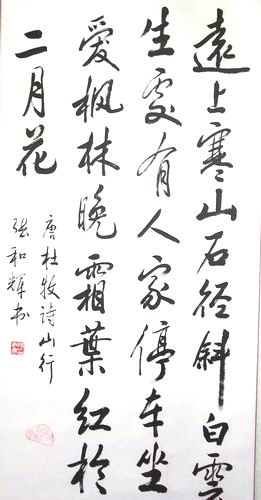 遠上寒山石径斜白雲
生處有人家停车坐
愛楓林晚霜葉红於
二月花
唐杜牧诗山行
张和辉书